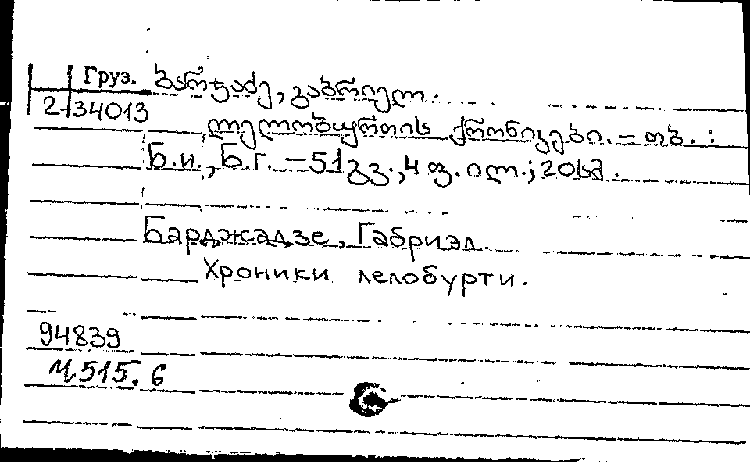 Груз. ბარჯაძე, გაბრიელ.
2-34013
ლელობურთის ქრონიკები. – თბ. :
Б.и., Б.г. – 51 გვ., 4 ფ. ილ.; 20 სმ.
Барджадзе, Габриэл.
Хроники лелобурти.
94839
Ч515.6